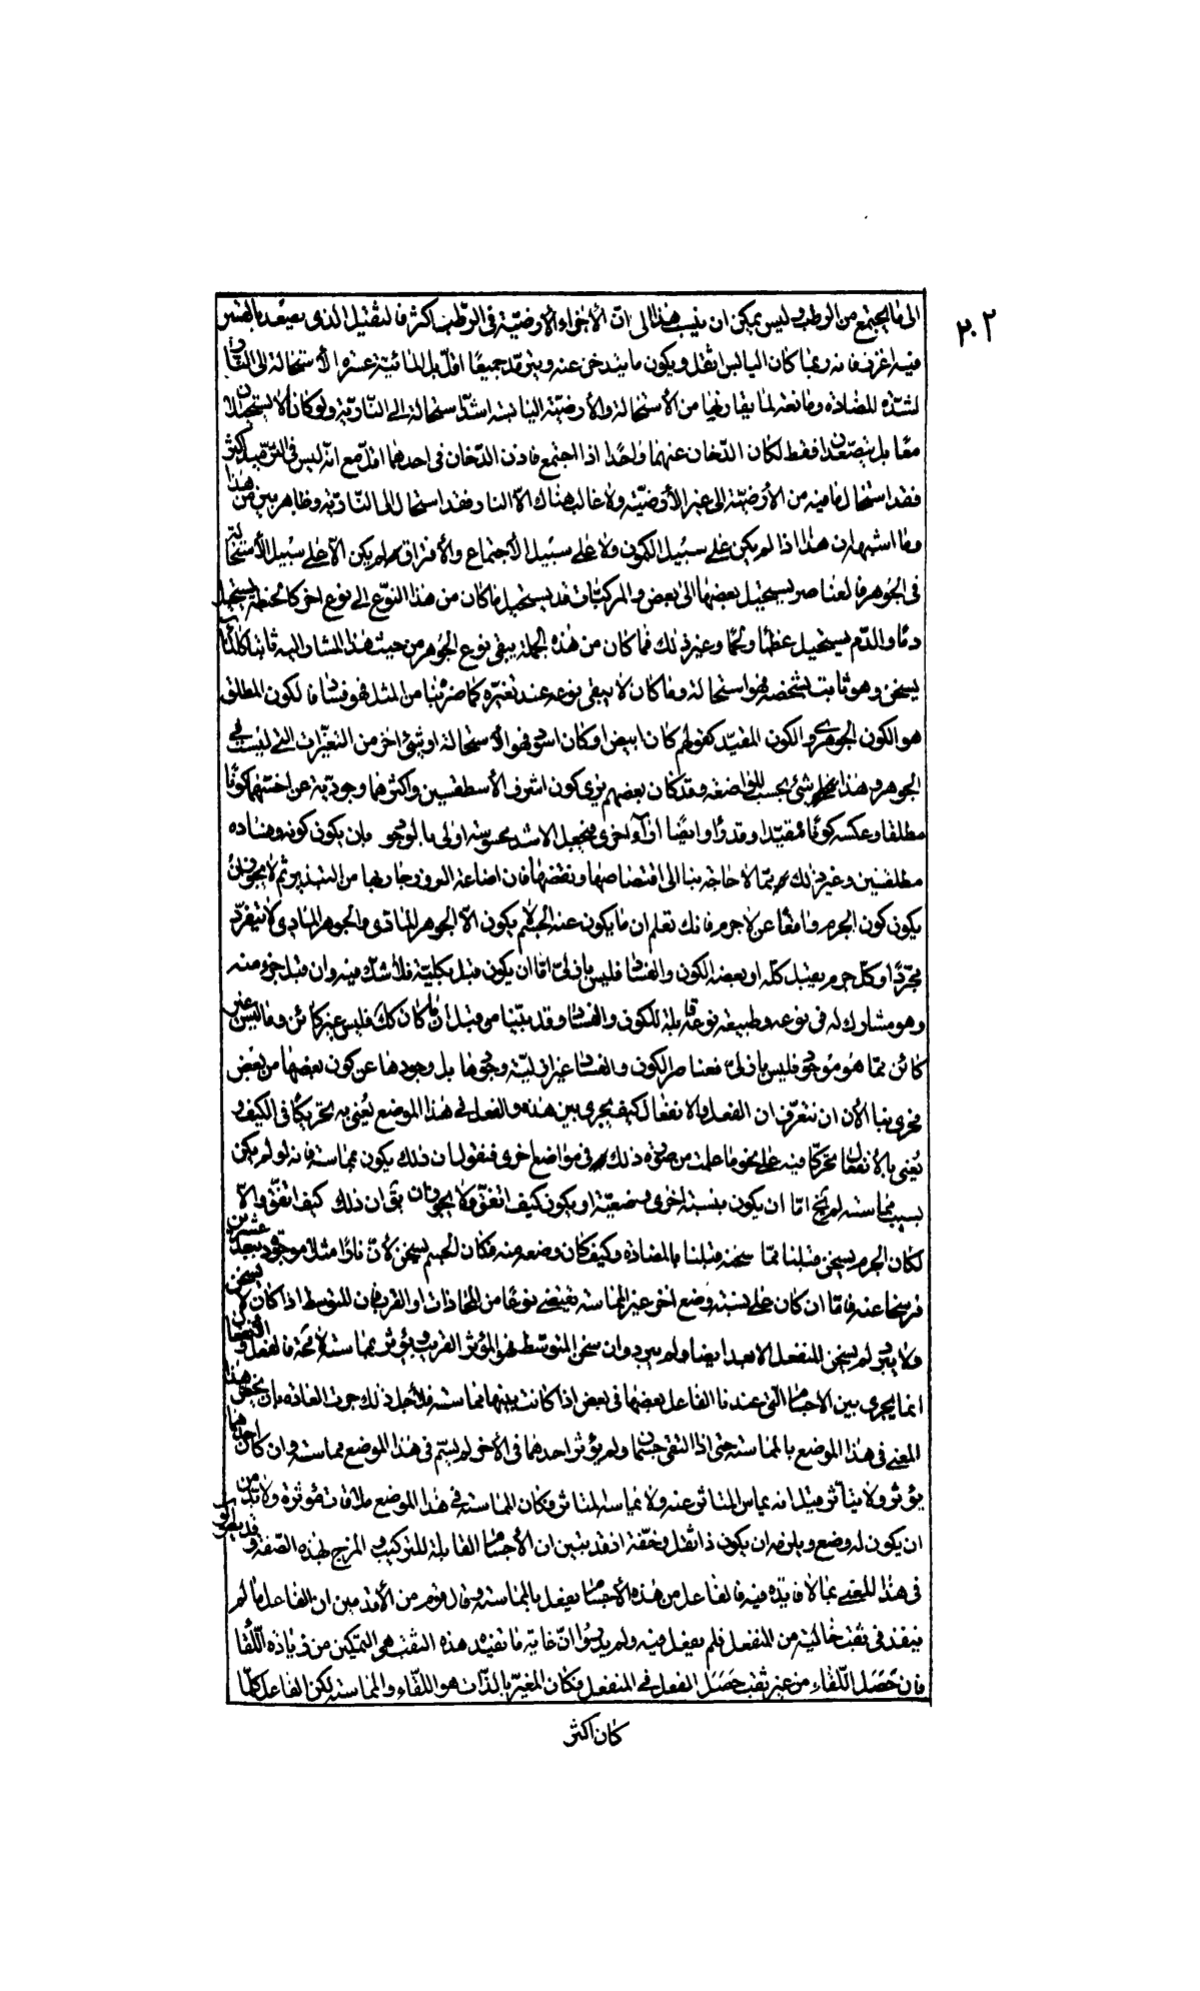 ٢٠٢
الى ما يجتمع من الرطب وليس يمكن ان ينسب هذا الى ان الأجزاء الأرضية فى الرطب اكثر فالثقيل الذى يصعد بالقسر
فيه اغزر فانه ربما كان اليابس اثقل ويكون ما يتدخن عنه ويترمد جميعا اقل بل المائية عسرة الأستحالة الى النار
لشدة المضادة ومانعة لما يقارنها من الأستحالة والأرضية اليابسة اشد استحالة الى النارية ولو كانا لا يستحيلان
معا بل يتصعدان فقط لكان الدخان عنهما واحدا اذا اجتمع فاذن الدخان فى احدهما اقل مع انه ليس فى الترمد اكثر
فقد استحال ما فيه من الأرضية الى غير الأرضية ولا غالب هناك الا النار فقد استحال الى النارية وظاهر بين من هذا
وما اشبهه ان هذا اذا لم يكن على سبيل الكمون ولا على سبيل الأجتماع والأفتراق لم يكن الا على سبيل الأستحالة
فى الجوهر فالعناصر يستحيل بعضها الى بعض والمركبات قد يستحيل ما كان من هذا النوع الى نوع اخر كالحنطة يستحيل
دما والدم يستحيل عظما ولحما وغير ذلك فما كان من هذه الجملة يبقى نوع الجوهر من حيث هذا المشار اليه ثابتا كالماء
يسخن وهو ثابت بشخصه فهو استحالة وما كان لا يبقى نوعه عند تغيره كما ضربنا من المثل فهو فساد فالكون المطلق
هو الكون الجوهرى والكون المقيد كقولهم كان ابيض او كان اسود فهو الأستحالة او شئ اخر من التغيرات التى ليست فى
الجوهر وهذا شئ بحسب المواضعة وقد كان بعضهم يرى كون اشرف الأسطقسين واكثرهما وجودية عن اخسهما كونا
مطلقا وعكسه كونا مقيدا وقد راوا ايضا اراء اخرى فجعل الاشد محسوسية اولى بالوجود وبان يكون كونه وفساده
مطلقين وغير ذلك مما لا حاجة بنا الى اقتصاصها ونقضها فان اضاعة الوقت فيما يجرى مجراها من التبذير ثم لا يجوز ان
يكون كون الجرم واقعا عن لا جرم فانك تعلم ان ما يكون عنه الجسم لا يكون الا الجوهر المادى والجوهر المادى لا يتفرد
مجردا وكل جرم يقبل كله او بعضه الكون والفساد فليس بازلى اما ان يكون قبل بكليته فلا شك فيه وان قبل جزو منه
وهو مشارك له فى نوعه وطبيعة نوعه قابلة للكون والفساد وقد بينا من قبل ان ما كان كك فليس غير كائن وما ليس غير
كائن مما هو موجود فليس بازلى فعناصر الكون والفساد غير ازلية وجودها بل وجودها عن كون بعضها من بعض
فحرى بنا الأن ان نتعرف ان الفعل والانفعال كيف يجرى بين هذه والفعل فى هذا الموضع يعنى به تحريكا فى الكيف و
يعنى بالأنفعال تحركا فيه على نحو ما علمت من صورة ذلك فى مواضع اخرى فنقول ان ذلك يكون مماسة فانه لو لم يكن
بسبب مماسة لم يخل اما ان يكون بنسبة اخرى وضعية او يكون كيف اتفق ولا يجوز ان يق ان ذلك كيف اتفق والا
لكان الجرم يسخن قبلنا مما سخنه قبلنا بالمضادة وكيف كان وضعه منه فكان الجسم يسخن لأن نارا مثلا موجودة ببعد عشرين
فرسخا عنه فاما ان كان على نسبة وضع اخر غير المماسة يقتضى نوعا من المحاذات او القرب فان المتوسط اذا كان لا يسخن
ولا يبرد لم يسخن المنفعل الابعد ايضا ولم يبرد وان سخن المتوسط فهو المؤثر القريب ويؤثر بمماسة لا محة فالفعل والأنفعال
انما يجرى بين الاجسام التى عندنا الفاعل بعضها فى بعض اذا كانت بينها مماسة فلأجل ذلك جرت العادة بان يخص هذا
المعنى فى هذا الموضع بالمماسة حتى اذا التقى جسمان ولم يؤثر احدهما فى الأخر لم يسم فى هذا الموضع مماسة وان كان احدهما
يؤثر ولا يتأثر قيل انه يماس المتاثر عنه ولا يماسه المتاثر فكان المماسة فى هذا الموضع ملاقاة مؤثرة ولا بد من
ان يكون له وضع ويلزمه ان يكون ذا ثقل وخفة اذ قد تبين ان الأجسام القابلة للتركيب والمزج لهذه الصفة وقد يطولون
فى هذا المعنى بما لا فايدة فيه فالفاعل من هذه الأجسام يفعل بالمماسة وقال قوم من الأقدمين ان الفاعل ما لم
ينفذ فى ثقب خالية من المنفعل فلم يفعل فيه ولم يدروا ان غاية ما تفيده هذه الثقب هى التمكين من زيادة اللقا
فان حصل اللقاء من غير ثقب حصل الفعل فى المنفعل فكان المغير بالذات هو اللقاء والمماسة لكن الفاعل كلما
كان اكثر